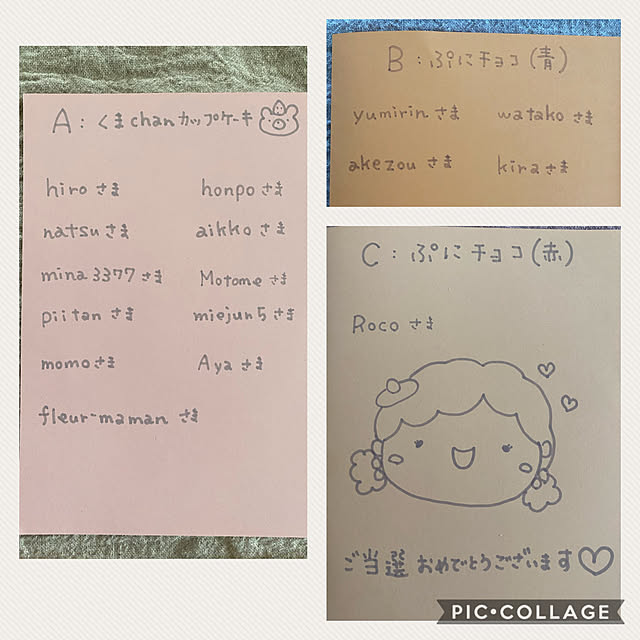 A：くまchanカップケーキ
hiro さま honpo さま
natsu さま aikko さま
mina3377 さま Motome さま
piitan さま miejun5 さま
momo さま Aya さま
fleur-maman さま
B：ぷにチョコ(青)
yumirin さま watako さま
akezou さま kira さま
C：ぷにチョコ(赤)
Roco さま
ご当選おめでとうございます♡
PIC•COLLAGE